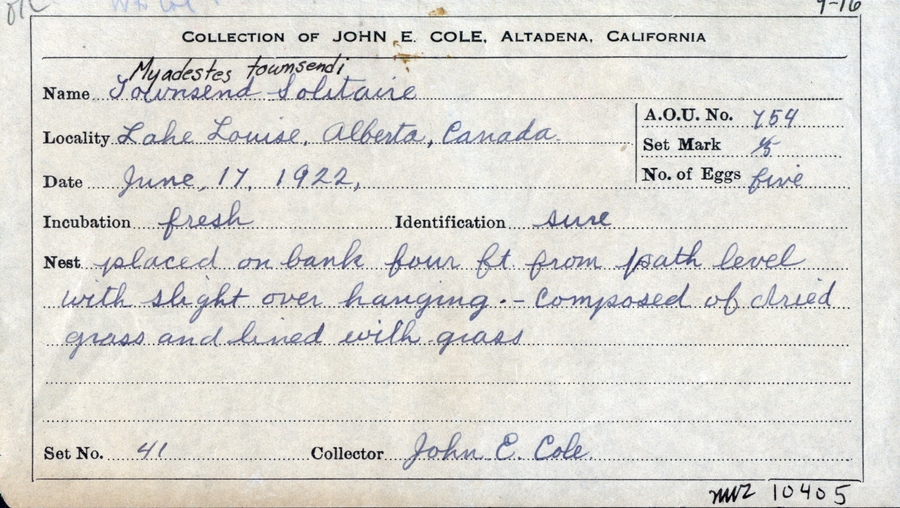 9-16
COLLECTION OF JOHN E. COLE, ALTADENA, CALIFORNIA
Myadestes townsendi
Name Townsend Solitaire
Locality Lake Louise, Alberta, Canada
A.O.U. No. 754
Set Mark 1/5
Date June, 17, 1922,
No. of Eggs five
Incubation fresh Identification sure
Nest placed on bank four ft from path level
with slight over hanging. - Composed of dried
grass and lined with grass
Set No. 41 Collector John E. Cole.
MVZ 10405